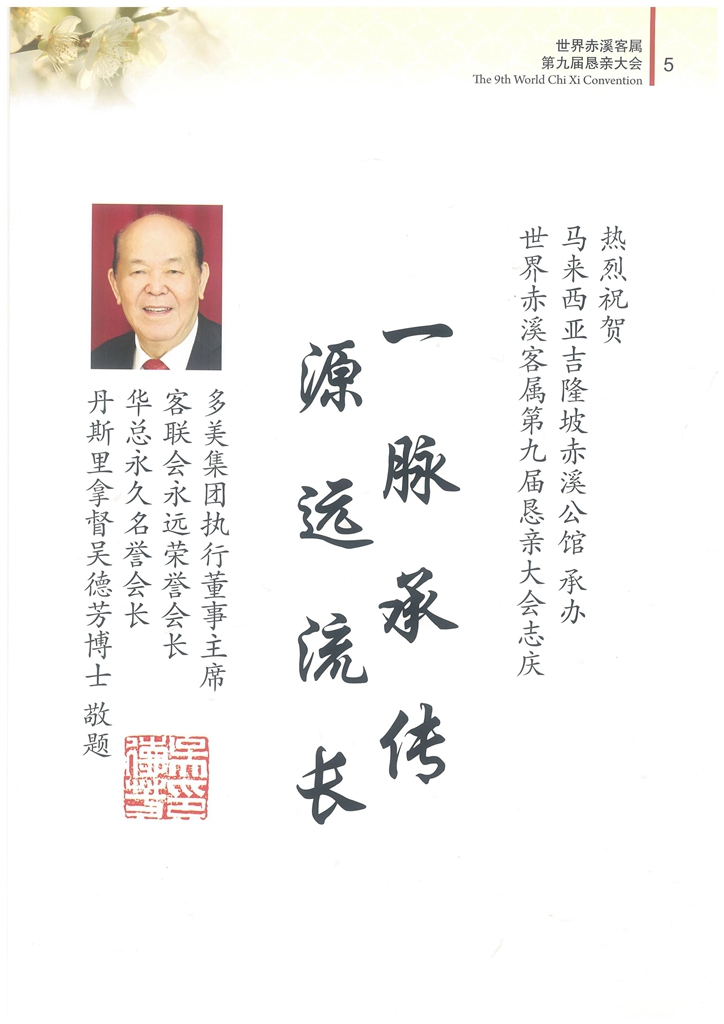 世界赤溪客属
第九届恳亲大会
The 9th World Chi Xi Convention
5
热烈祝贺
马来西亚吉隆坡赤溪公馆 承办
世界赤溪客属第九届恳亲大会志庆
一脉承传
源远流长
多美集团执行董事主席
客联会永远荣誉会长
华总永久名誉会长
丹斯里拿督吴德芳博士 敬题
吴德芳印